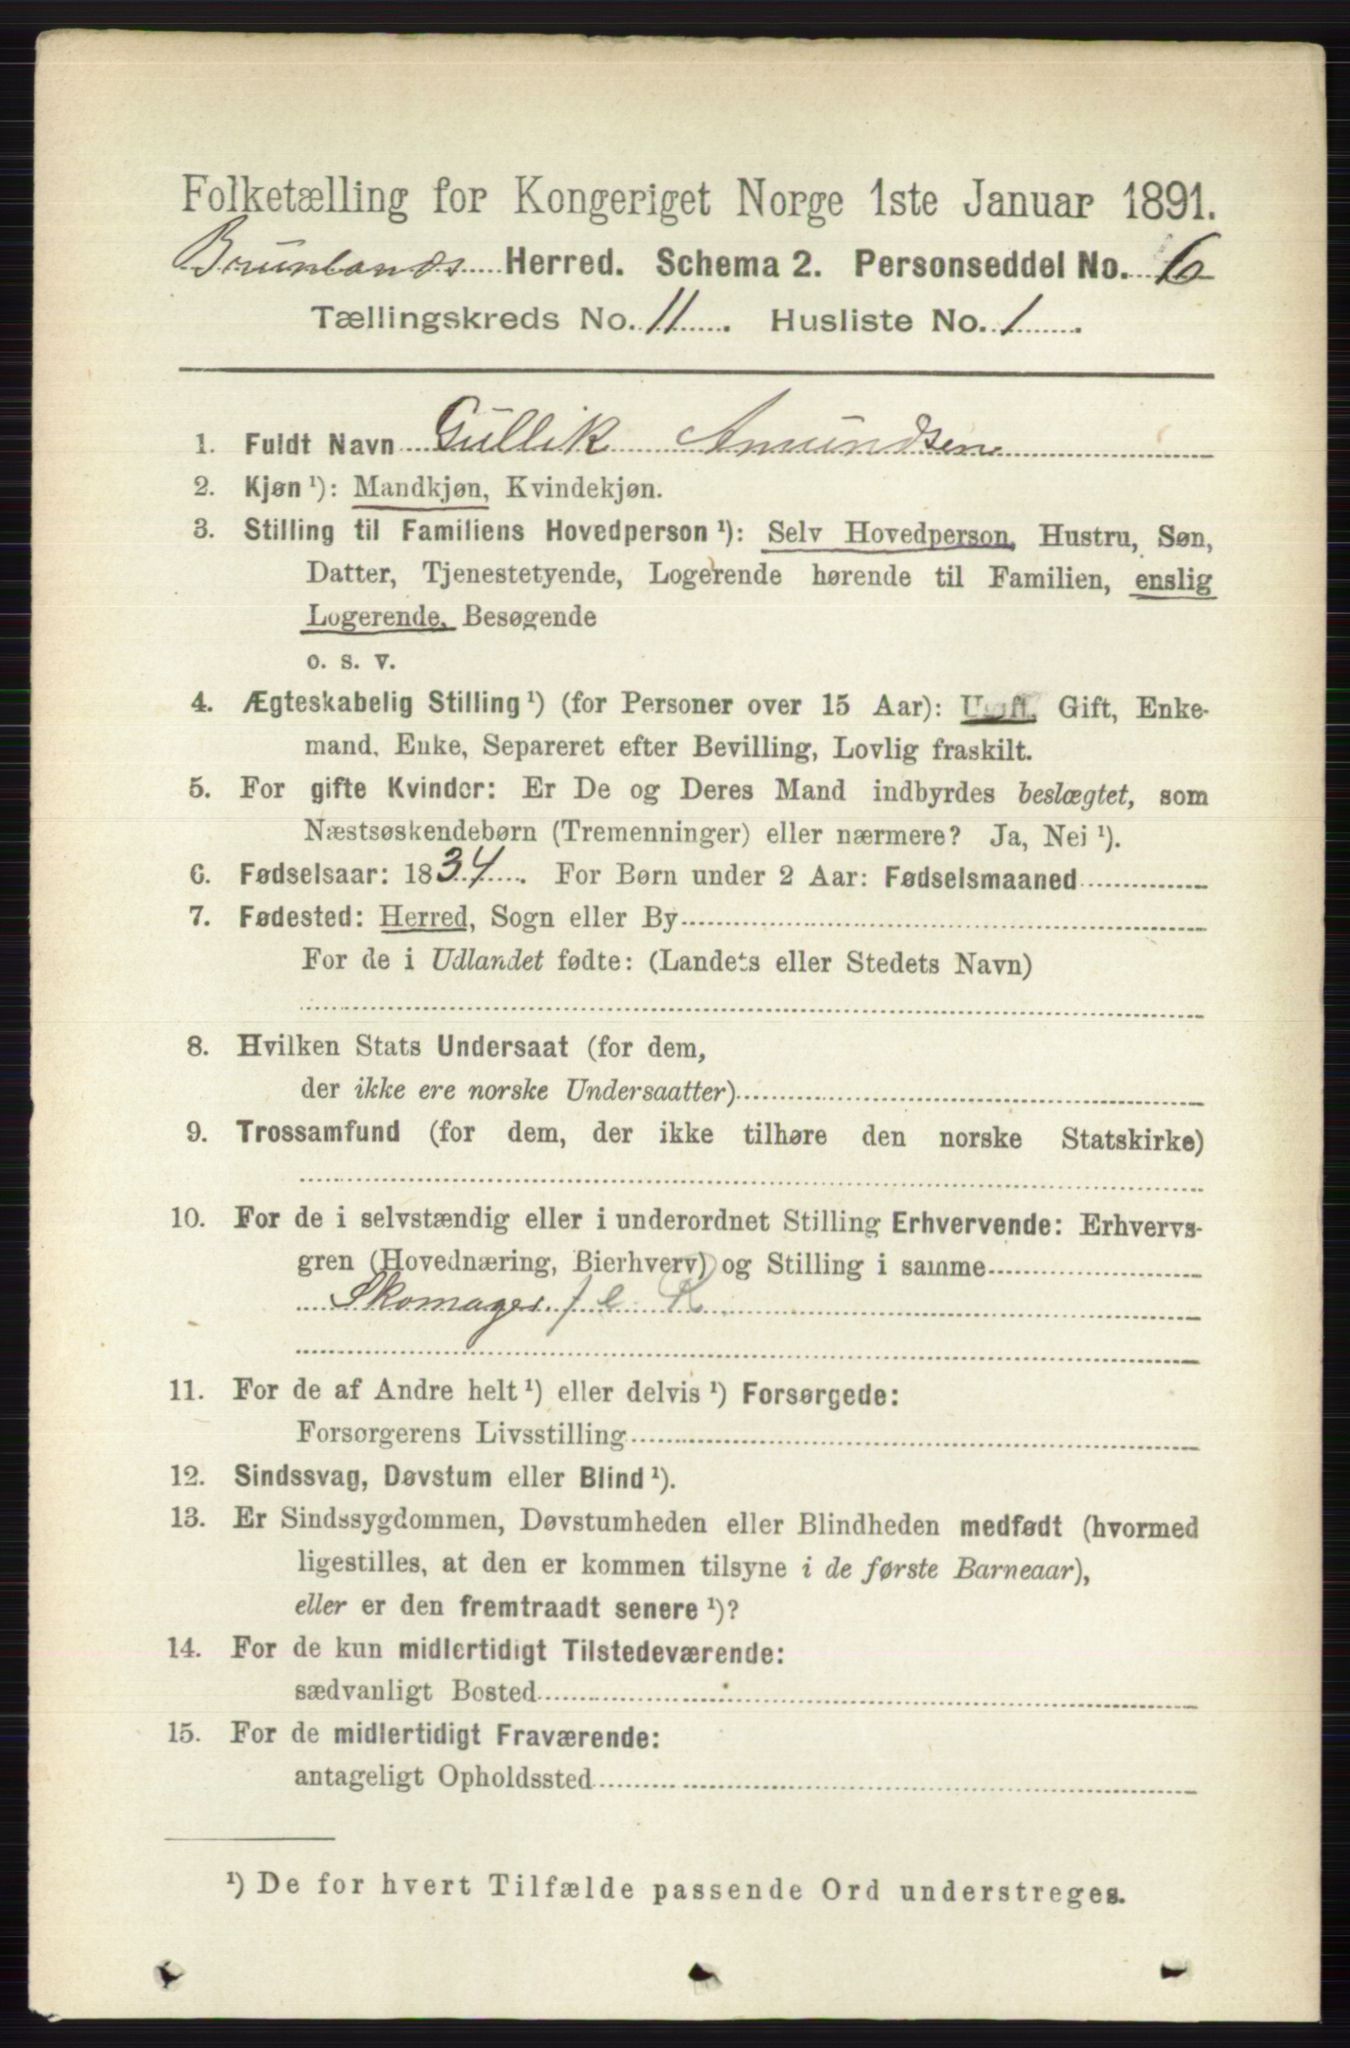 Folketælling for Kongeriget Norge 1ste Januar 1891.
Brunlands Herred. Schema 2. Personseddel No. 6
Tællingskreds No. 11. Husliste No. 1.
1. Fuldt Navn Gullik Amundsen
2. Kjøn ¹): Mandkjøn, Kvindekjøn.
3. Stilling til Familiens Hovedperson ¹): Selv Hovedperson, Hustru, Søn,
Datter, Tjenestetyende, Logerende hørende til Familien, enslig
Logerende, Besøgende
o. s. v.
4. Ægteskabelig Stilling ¹) (for Personer over 15 Aar): Ugift, Gift, Enke-
mand, Enke, Separeret efter Bevilling, Lovlig fraskilt.
5. For gifte Kvinder: Er De og Deres Mand indbyrdes beslægtet, som
Næstsøskendebørn (Tremenninger) eller nærmere? Ja, Nei ¹).
6. Fødselsaar: 1834. For Børn under 2 Aar: Fødselsmaaned
7. Fødested: Herred, Sogn eller By
For de i Udlandet fødte: (Landets eller Stedets Navn)
8. Hvilken Stats Undersaat (for dem,
der ikke ere norske Undersaatter)
9. Trossamfund (for dem, der ikke tilhøre den norske Statskirke)
10. For de i selvstændig eller i underordnet Stilling Erhvervende: Erhvervs-
gren (Hovednæring, Bierhverv) og Stilling i samme
Skomager f e R
11. For de af Andre helt ¹) eller delvis ¹) Forsørgede:
Forsørgerens Livsstilling
12. Sindssvag, Døvstum eller Blind ¹).
13. Er Sindssygdommen, Døvstumheden eller Blindheden medfødt (hvormed
ligestilles, at den er kommen tilsyne i de første Barneaar),
eller er den fremtraadt senere ¹)?
14. For de kun midlertidigt Tilstedeværende:
sædvanligt Bosted
15. For de midlertidigt Fraværende:
antageligt Opholdssted
¹) De for hvert Tilfælde passende Ord understreges.